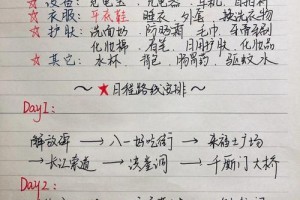 ☆ 设备: 充电宝、充电器、耳机、自拍杆
☆ 衣服: 牙衣鞋 睡衣、外套、换洗衣物
☆ 护肤: 洗面奶、防晒霜、毛巾、牙膏牙刷
化妆棉、眉笔、日用护肤、化妆品
☆ 其它: 水杯、背包、肠胃药、驱蚊水
~☆日程路线安排~
Day1:
解放碑 → 八一好吃街 → 来福士广场
→ 长江索道 → 洪崖洞 → 千厮门大桥
Day2: